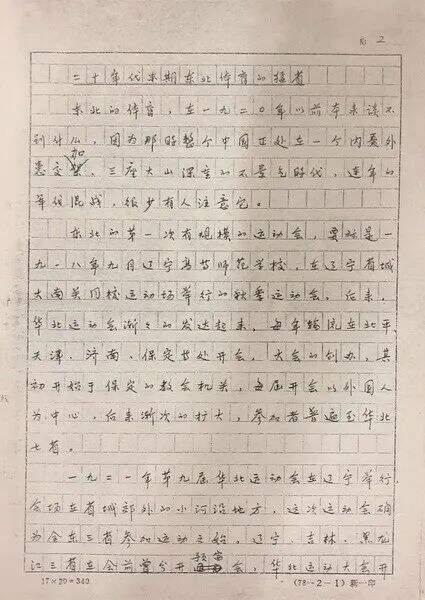 2
二十年代末期东北体育的接省
东北的体育，在一九二0年以前本来谈不
到什么，因为那时整个中国正处在一个内忧外
患交加，三座大山深重的不景气时代，连年的
军伐混战，很少有人注意它。
东北的第一次有规模的运动会，要称是一
九一八年九月辽宁高等师范学校，在辽宁省城
大南关同校运动场举行的秋季运动会。后来，
华北运动会渐々的发达起来，每年轮流在北平、
天津、济南、保定等处开会，大会的创办，其
初开始于保定的教会机关，每届开会以外国人
为中心，后来渐次的扩大，参加者普遍至华北
七省。
一九二一年第九届华北运动会在辽宁举行
会场在省城郊外的小河沿地方，这次运动会确
为全东三省参加运动之始，辽宁、吉林、黑龙
江三省在会前曾分开预备会，华北运动大会开
17×20=340
(78-2-1)新一印